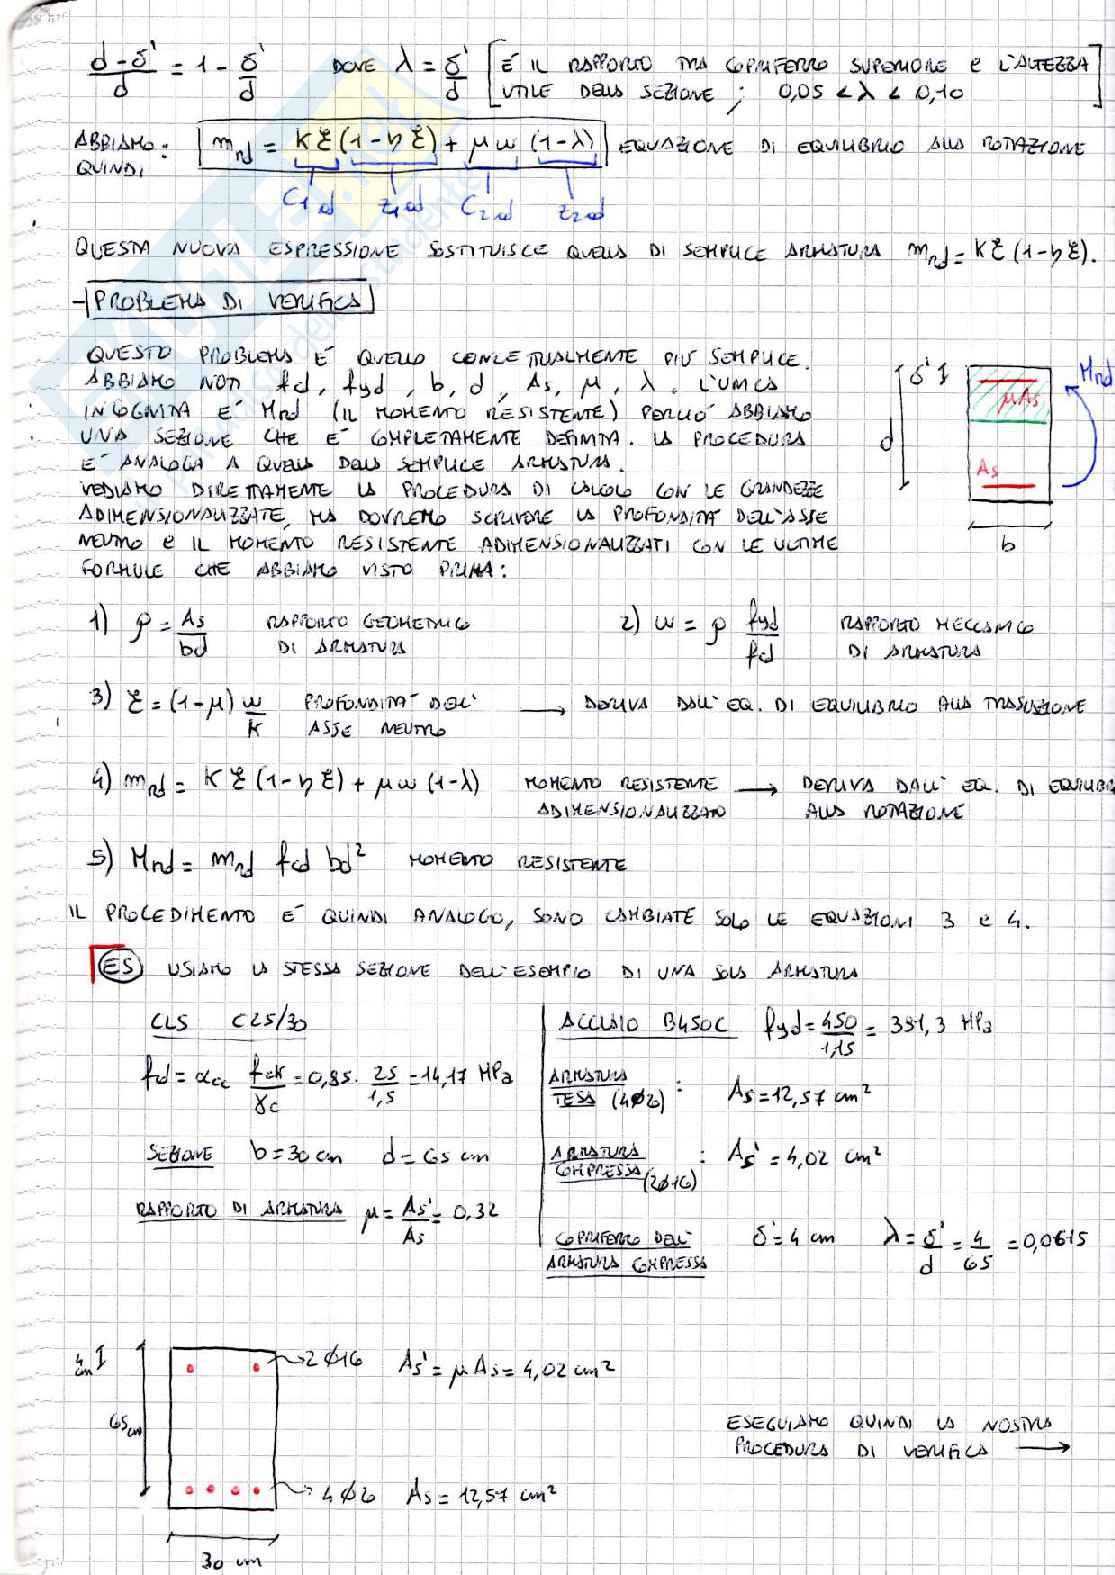 d-δ'/d = 1 - δ'/d DOVE λ = δ'/d [È IL RAPPORTO TRA COPRIFERRO SUPERIORE E L'ALTEZZA
UTILE DELLA SEZIONE ; 0,05 < λ < 0,10]
ABBIAMO QUINDI: m_rd = K ξ (1 - η ξ) + μ ω (1-λ) EQUAZIONE DI EQUILIBRIO ALLA ROTAZIONE
C1rd z1rd C2rd z2rd
QUESTA NUOVA ESPRESSIONE SOSTITUISCE QUELLA DI SEMPLICE ARMATURA m_rd = K ξ (1-η ξ).
- PROBLEMA DI VERIFICA
QUESTO PROBLEMA È QUELLO CONCETTUALMENTE PIÙ SEMPLICE.
ABBIAMO NOTI fcd, fyd, b, d, As, μ, λ. L'UNICA
INCOGNITA È Mrd (IL MOMENTO RESISTENTE) PERCHÈ ABBIAMO
UNA SEZIONE CHE È COMPLETAMENTE DEFINITA. LA PROCEDURA
È ANALOGA A QUELLA DELLA SEMPLICE ARMATURA.
VEDIAMO DIRETTAMENTE LA PROCEDURA DI CALCOLO CON LE GRANDEZZE
ADIMENSIONALIZZATE, MA DOVREMO SCRIVERE LA PROFONDITÀ DELL'ASSE
NEUTRO E IL MOMENTO RESISTENTE ADIMENSIONALIZZATI CON LE ULTIME
FORMULE CHE ABBIAMO VISTO PRIMA:
δ' d μAs As Mrd b
1) ρ = As/bd RAPPORTO GEOMETRICO DI ARMATURA
2) ω = ρ fyd/fcd RAPPORTO MECCANICO DI ARMATURA
3) ξ = (1-μ) ω/K PROFONDITÀ DELL'ASSE NEUTRO → DERIVA DALL'EQ. DI EQUILIBRIO ALLA TRASLAZIONE
4) m_rd = K ξ (1-η ξ) + μ ω (1-λ) MOMENTO RESISTENTE ADIMENSIONALIZZATO → DERIVA DALL'EQ. DI EQUILIBR
ALLA ROTAZIONE
5) Mrd = m_rd fcd bd² MOMENTO RESISTENTE
IL PROCEDIMENTO È QUINDI ANALOGO, SONO CAMBIATE SOLO LE EQUAZIONI 3 E 4.
ES USIAMO LA STESSA SEZIONE DELL'ESEMPIO DI UNA SOLA ARMATURA
CLS C25/30
fcd = αcc fck/γc = 0,85 · 25/1,5 = 14,17 MPa
SEZIONE b = 30 cm d = 65 cm
RAPPORTO DI ARMATURA μ = As'/As = 0,32
ACCIAIO B450C fyd = 450/1,15 = 391,3 MPa
ARMATURA TESA (4Ø20) : As = 12,57 cm²
ARMATURA COMPRESSA (2Ø16) : As' = 4,02 cm²
COPRIFERRO DELL'ARMATURA COMPRESSA δ' = 4 cm λ = δ'/d = 4/65 = 0,0615
4 cm 2Ø16 As' = μAs = 4,02 cm²
65 cm
ESEGUIAMO QUINDI LA NOSTRA
PROCEDURA DI VERIFICA →
4Ø20 As = 12,57 cm²
30 cm